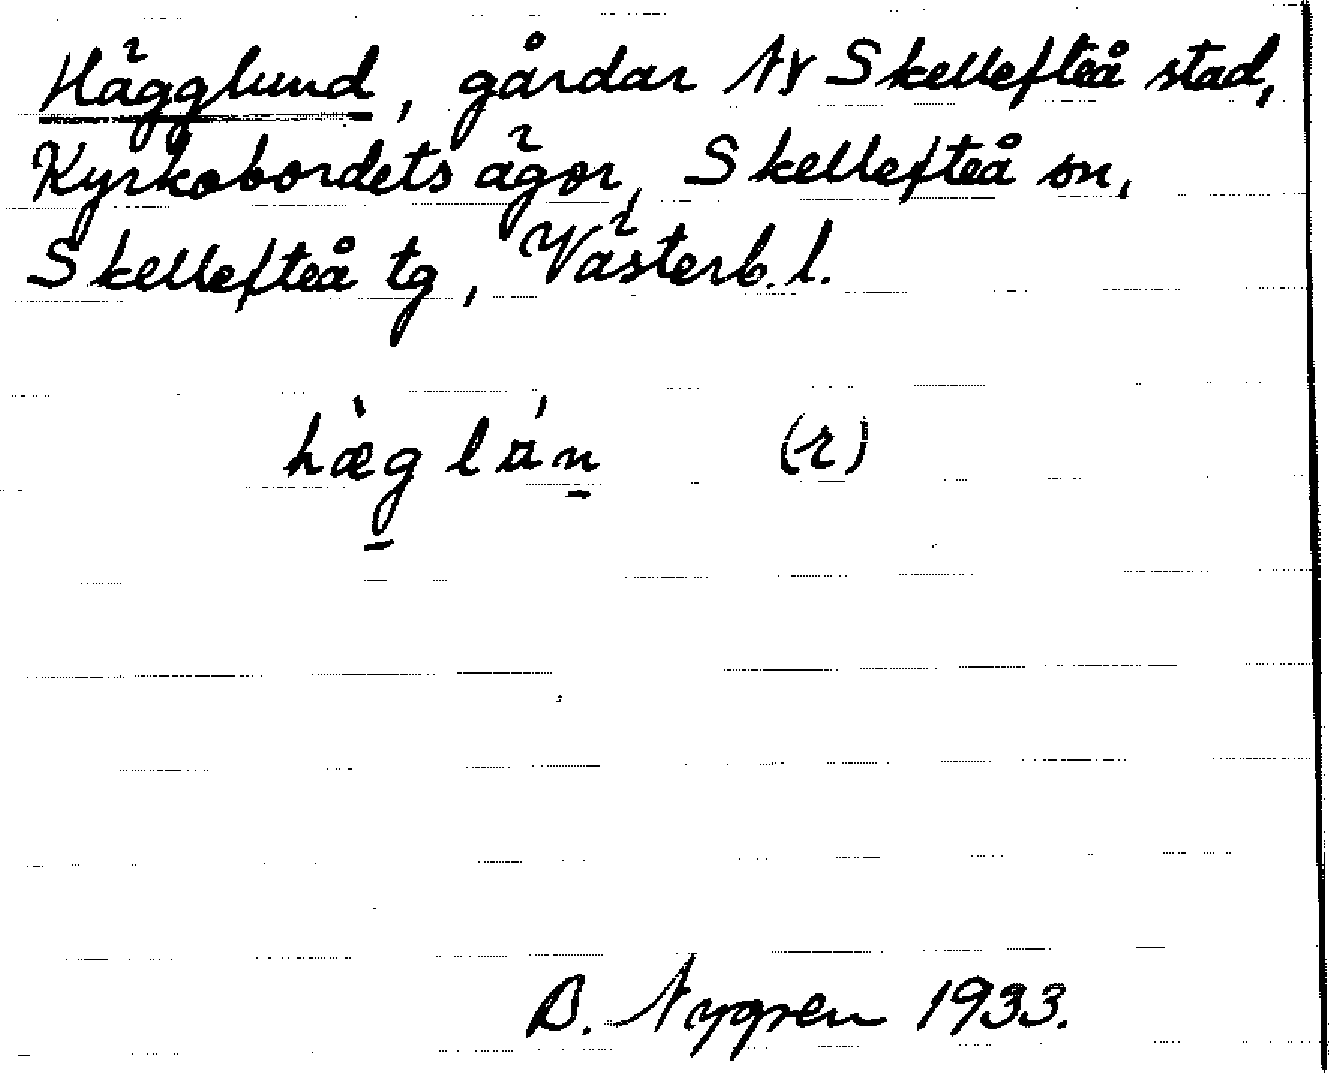 Hägglund, gårdar NV Skellefteå stad,
Kyrkobordets ägor, Skellefteå sn,
Skellefteå tg, Västerb. l.
(r)
B. Nygren 1933.